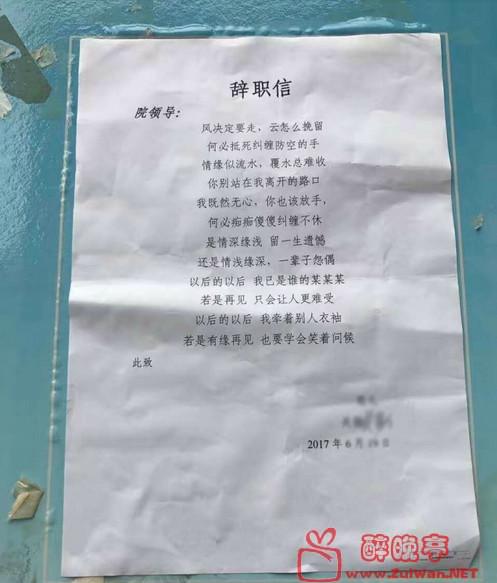 辞职信
院领导：
风决定要走，云怎么挽留
何必抵死纠缠防空的手
情缘似流水，覆水总难收
你别站在我离开的路口
我既然无心，你也该放手，
何必痴痴傻傻纠缠不休
是情深缘浅 留一生遗憾
还是情浅缘深，一辈子怨偶
以后的以后 我已是谁的某某某
若是再见 只会让人更难受
以后的以后 我牵着别人衣袖
若是有缘再见 也要学会笑着问候
此致
2017 年 6 月 日
醉晚亭
www.zuiwan.NET